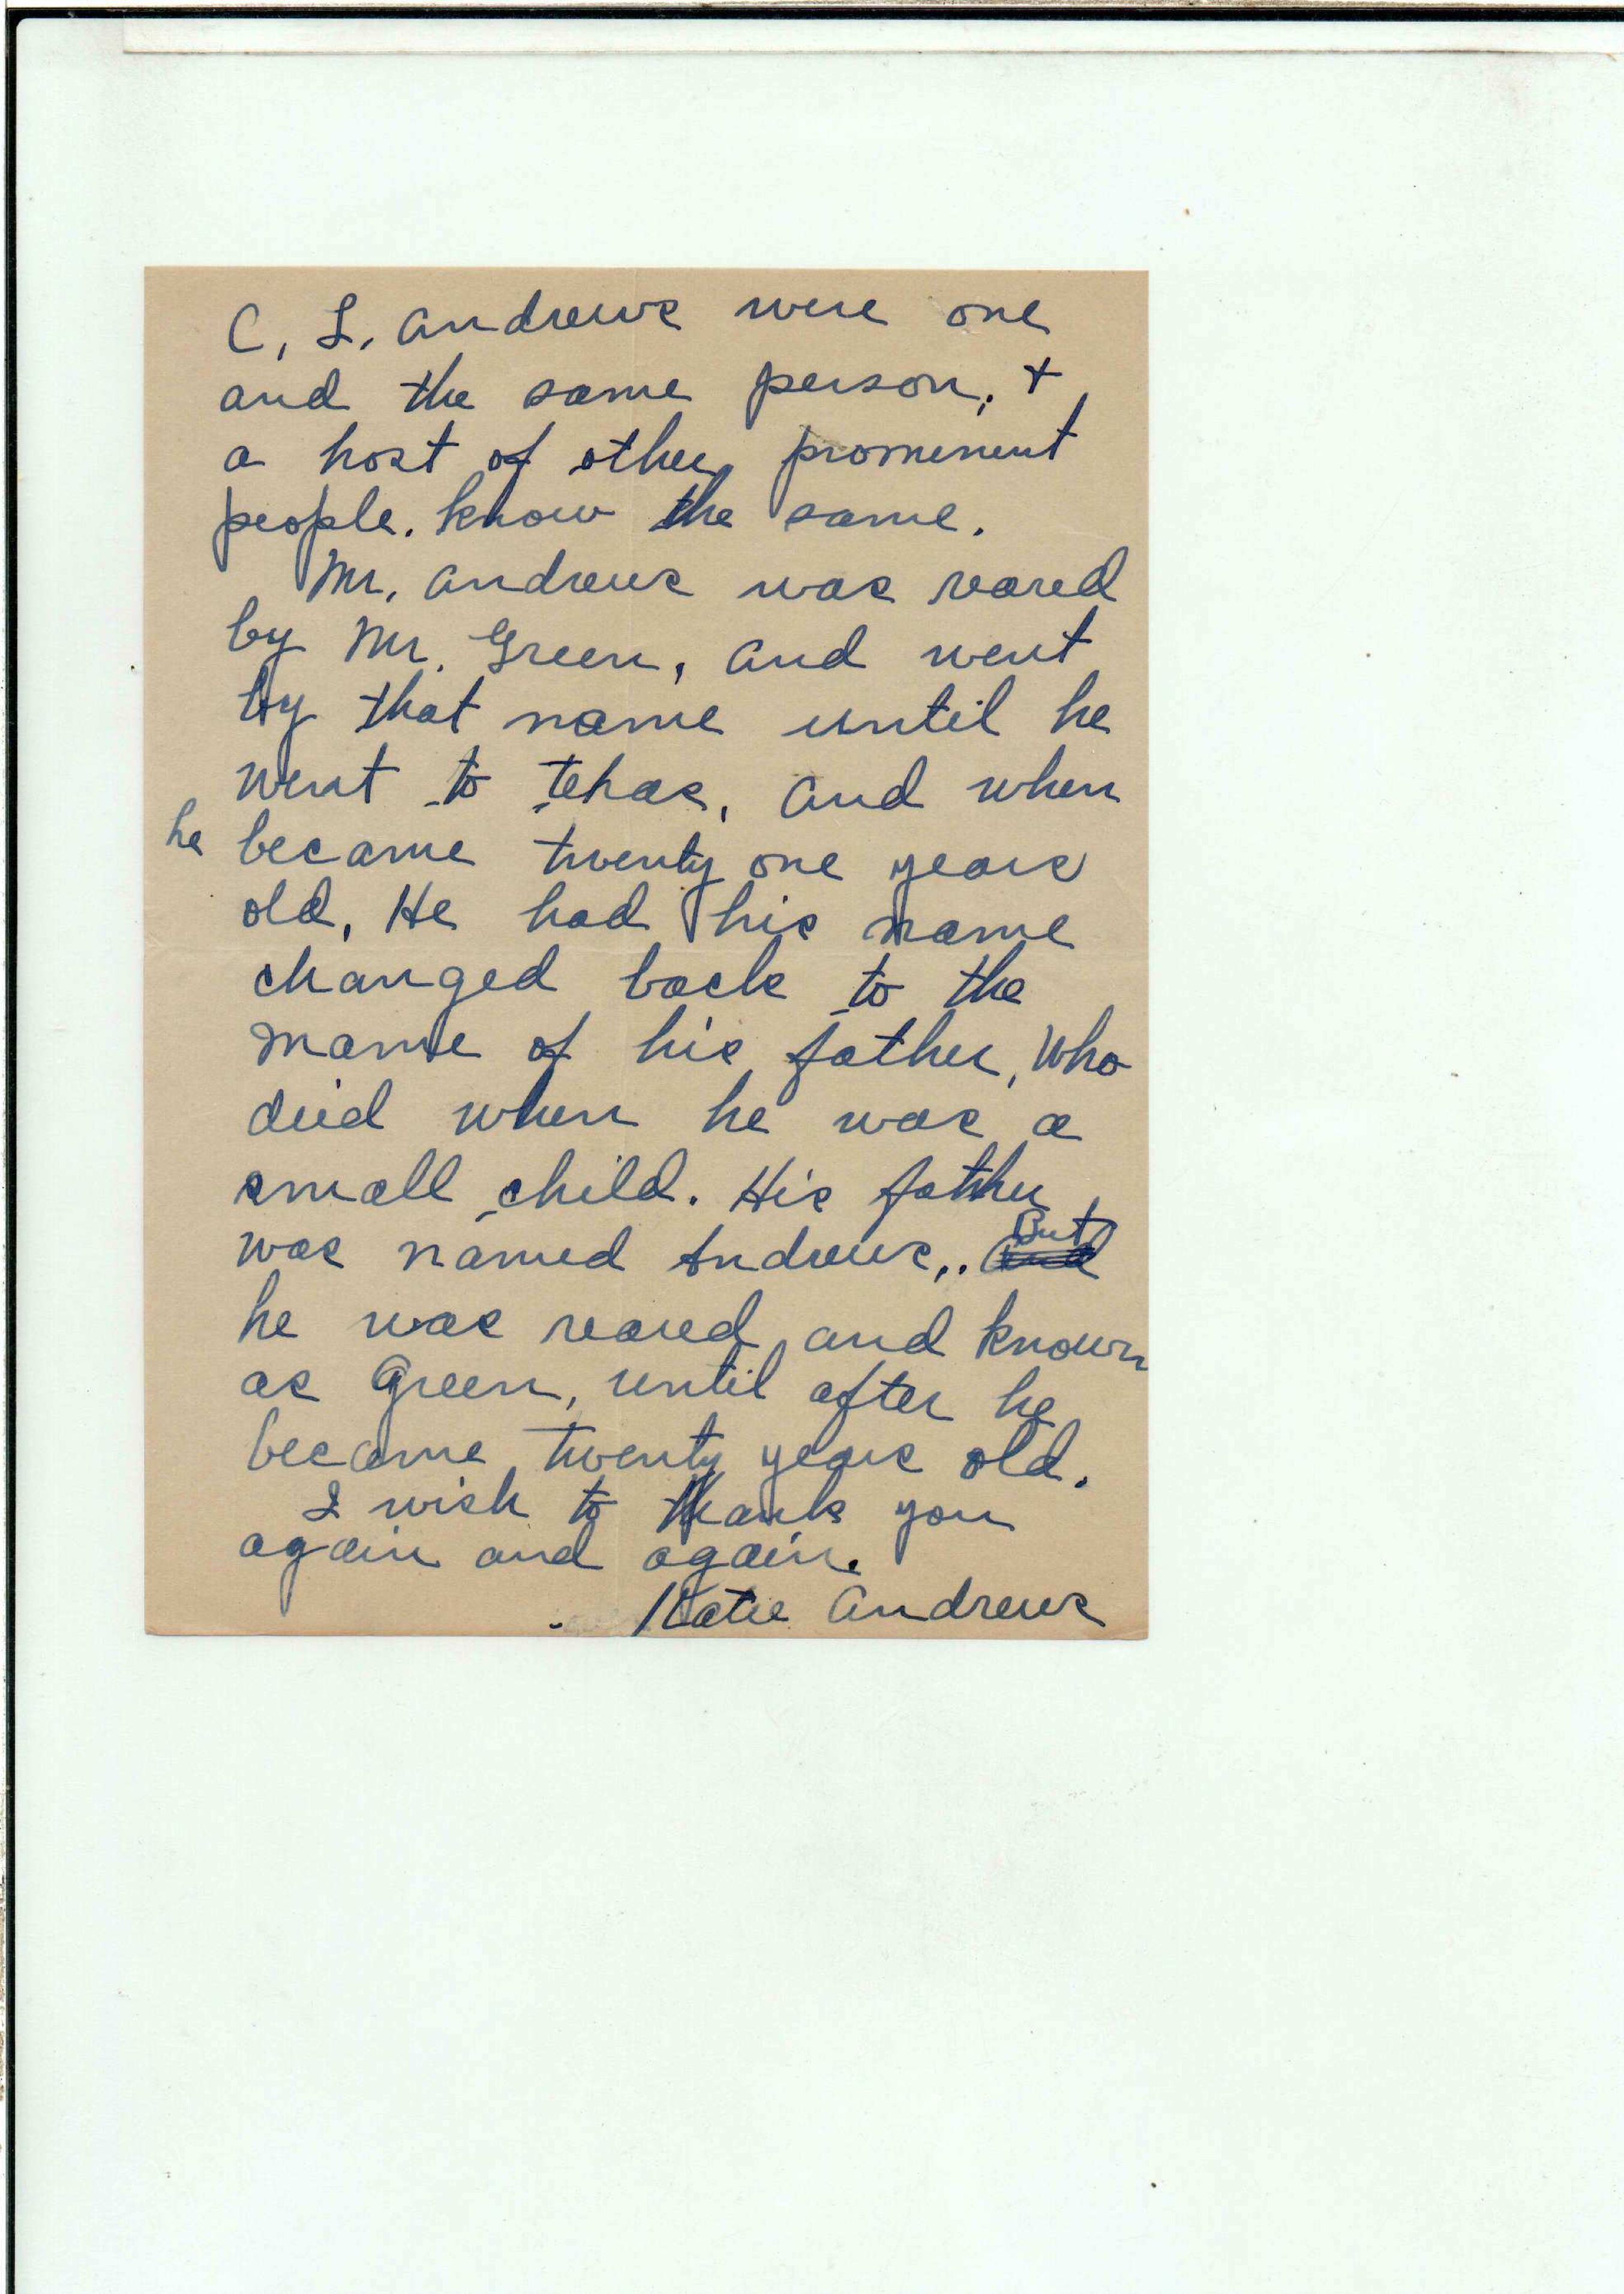 C. L. Andrews were one
and the same person, +
a host of other prominent
people. know the same.
Mr. Andrews was reared
by Mr. Green, and went
by that name until he
went to tehas, and when
he became twenty one years
old, He had his name
changed back to the
name of his father, who
died when he was a
small child. His father
was named Andrews,. and But
he was reared and known
as Green, until after he
became twenty years old.
I wish to thank you
again and again.
Katie Andrews